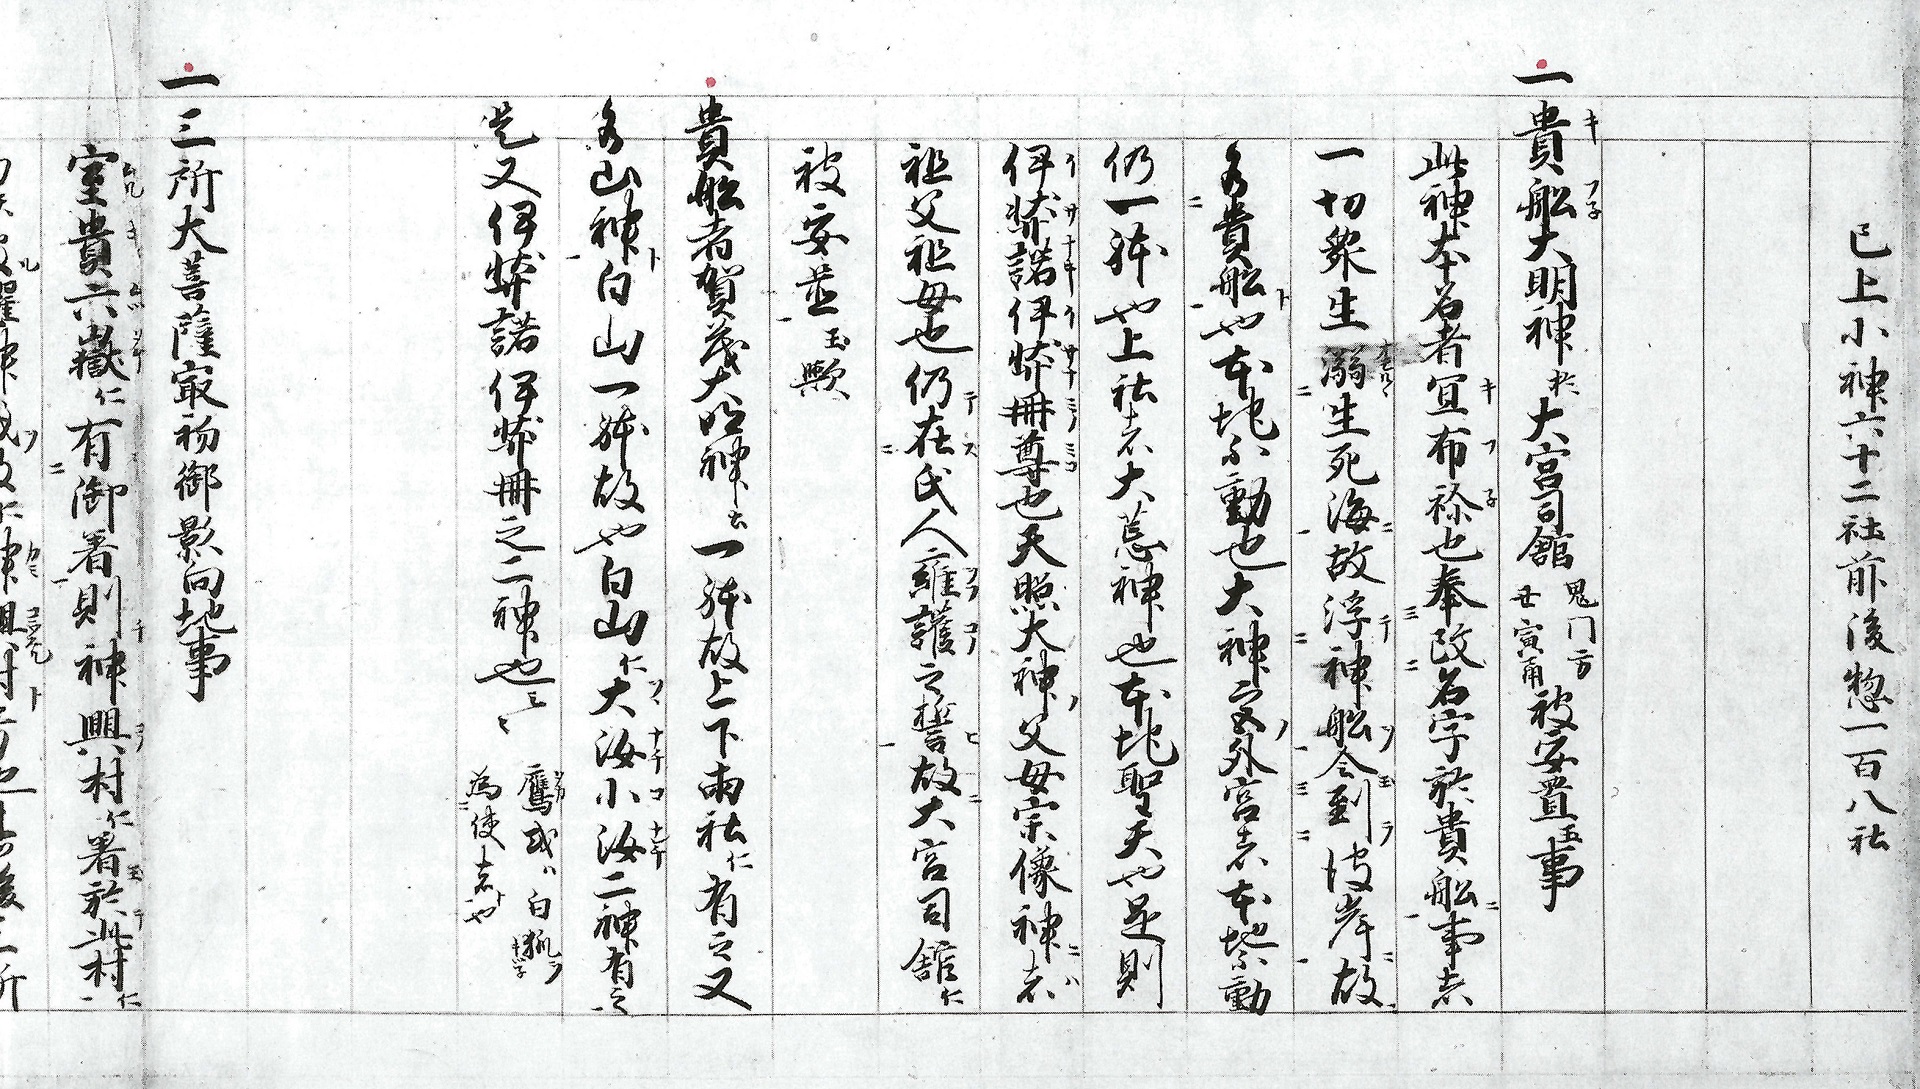 已上小神六十二社前後惣一百八社
一貴船大明神於大宮司館鬼門方丑寅角被安置玉事
此神本名者冝布祢也奉改名字於貴船事者
一切衆生溺生死海故浮神船令到彼岸故
名貴船也本地不動也大神宮外宮者本地不動
仍一躰也上社者大荒神也本地聖天也是則
伊弉諾伊弉冊尊也天照大神父母宗像神者
祖父祖母也仍在氏人擁護之誓故大宮司館仁
被安並玉歟
貴船者賀茂大明神ト一躰故上下両社仁有之又
名山神白山一躰故也白山仁大汝小汝二神有之
是又伊弉諾伊弉冊之二神也云々鷹或白狐為使者也
一三所大菩薩冣初御影向地事
室貴六嶽仁有御着則神興村仁着於此村仁